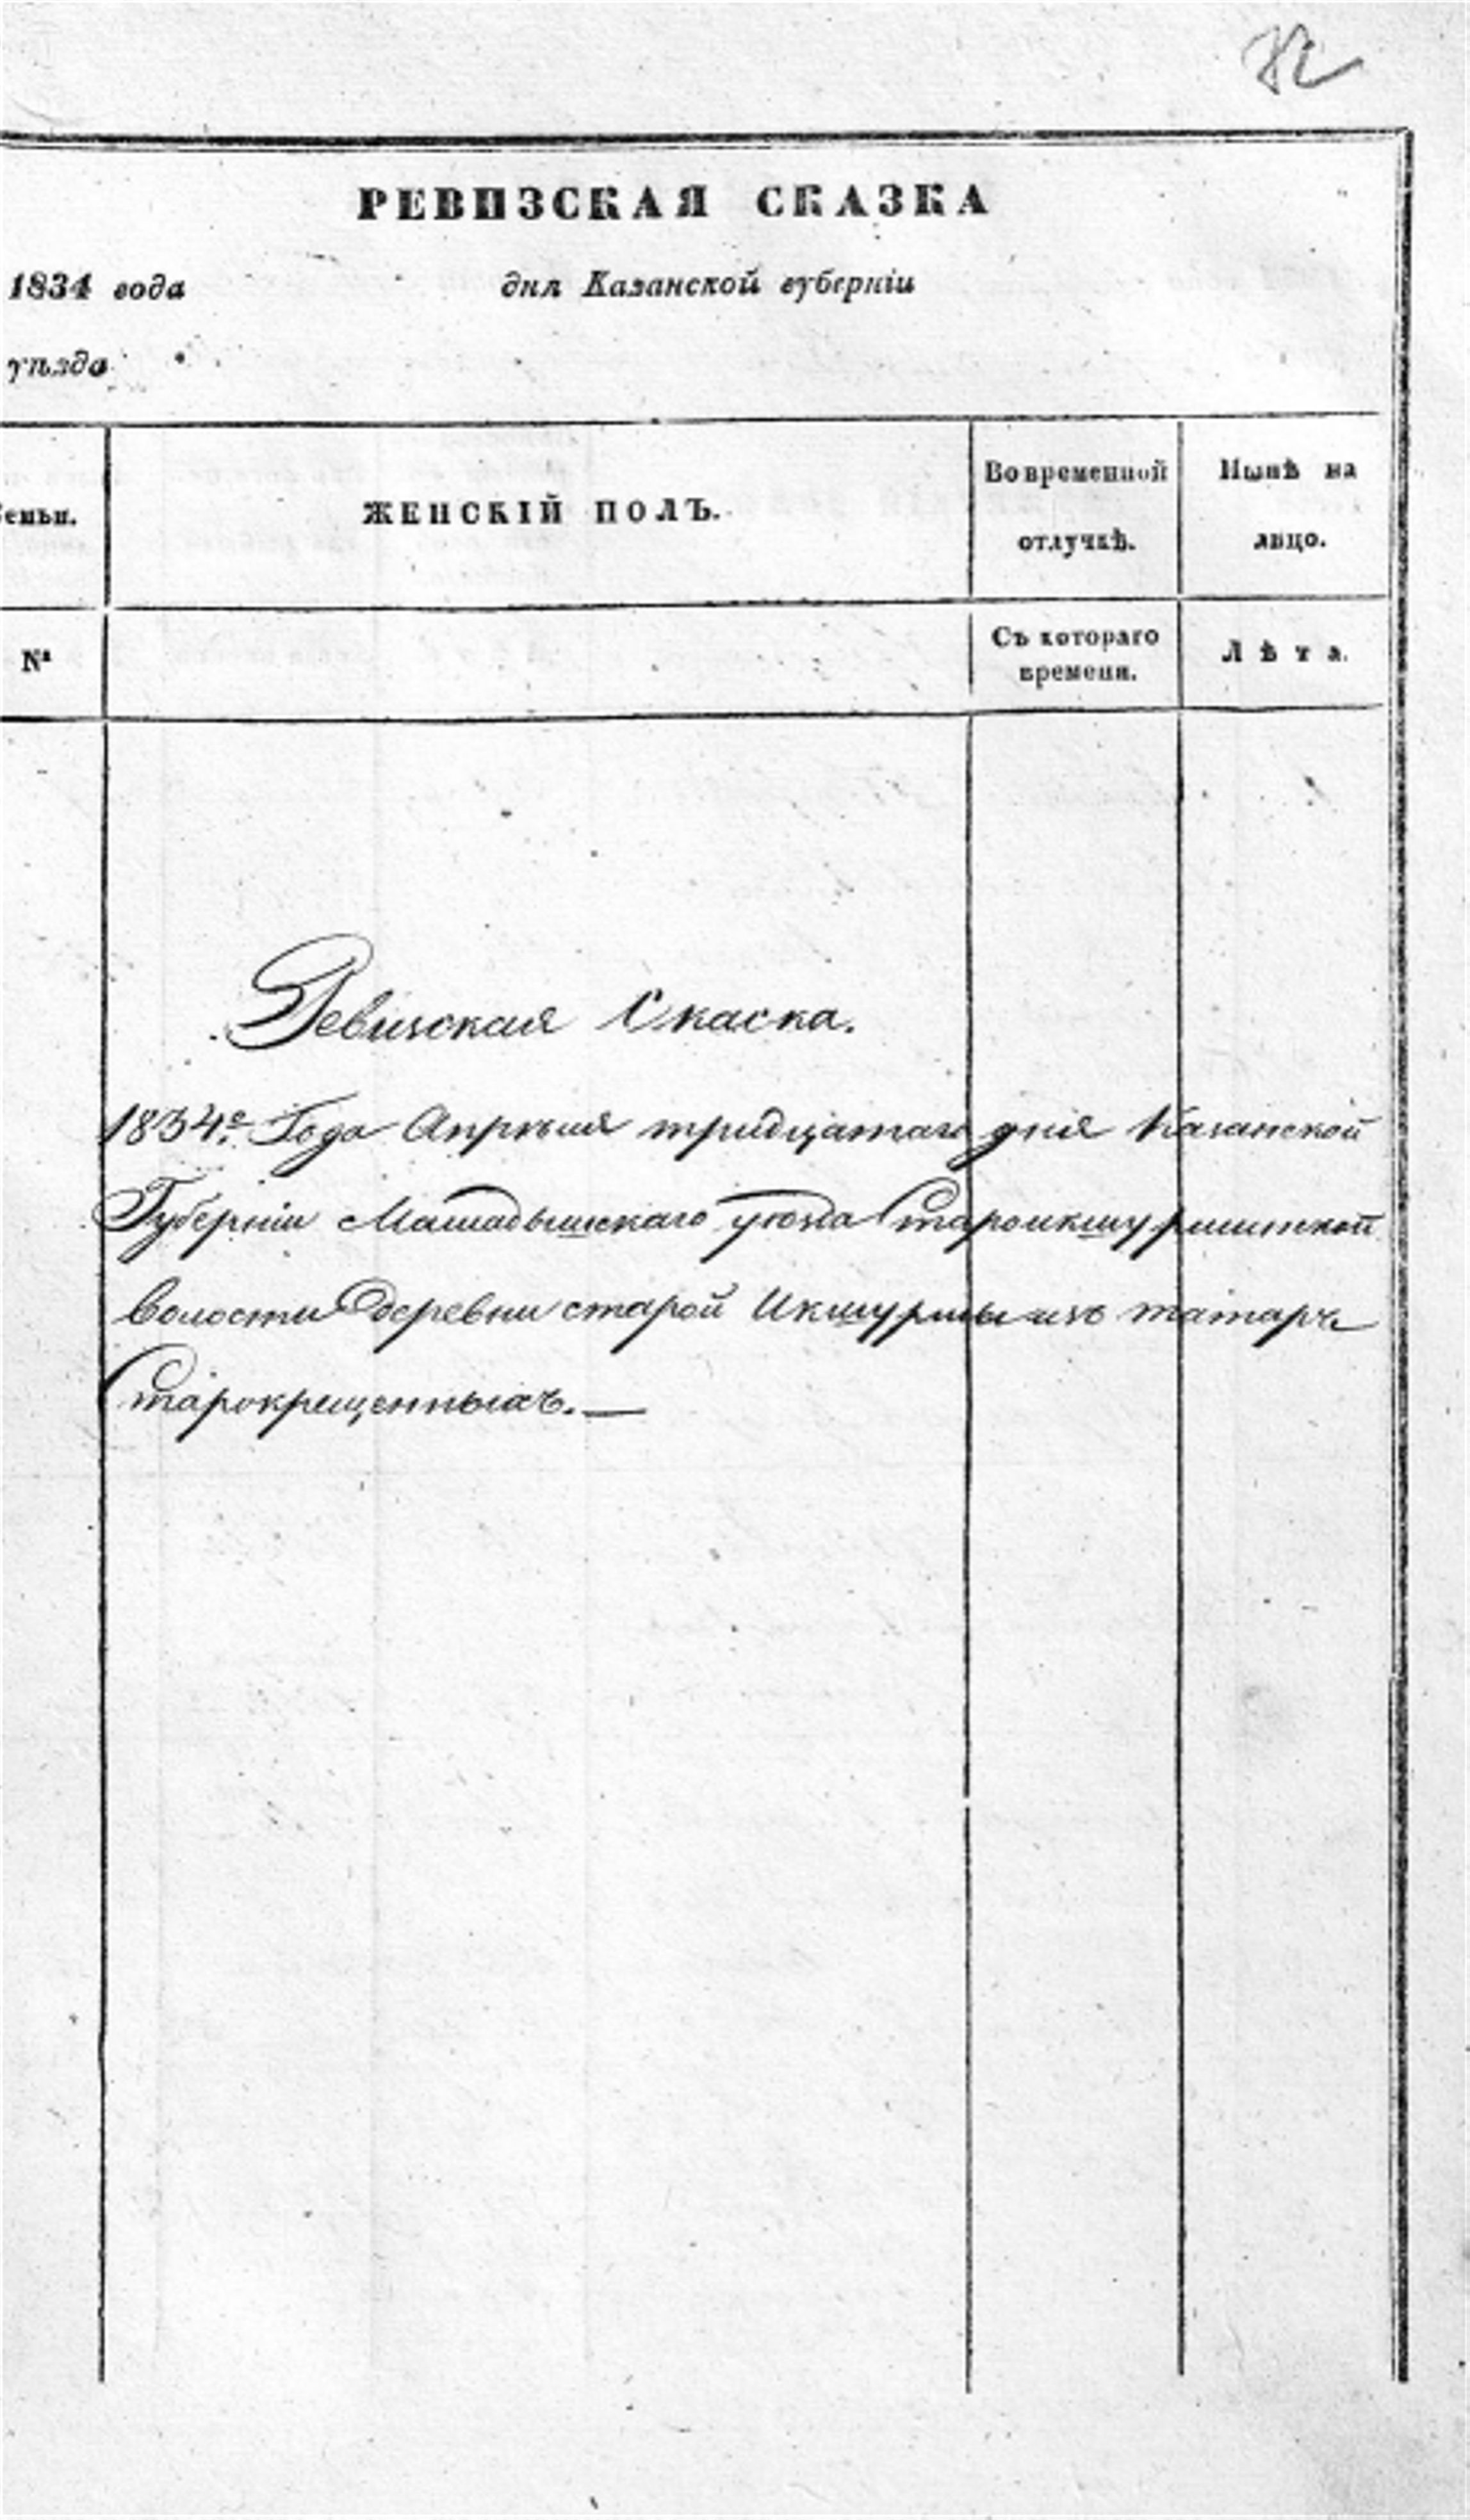 РЕВИЗСКАЯ СКАЗКА
1834 года дня Казанской губерніи
уѣзда
семьи. ЖЕНСКІЙ ПОЛЪ. Во временной отлучкѣ. Нынѣ на лицо.
№ Съ котораго времени. Лѣта.
Ревизская Скаска.
1834го Года Апрѣля тридцатаго дня Казанской
Губерніи Мамадышскаго уѣзда Староикшурминской
волости деревни старой Икшурмы изъ татаръ
Старокрещенныхъ.—